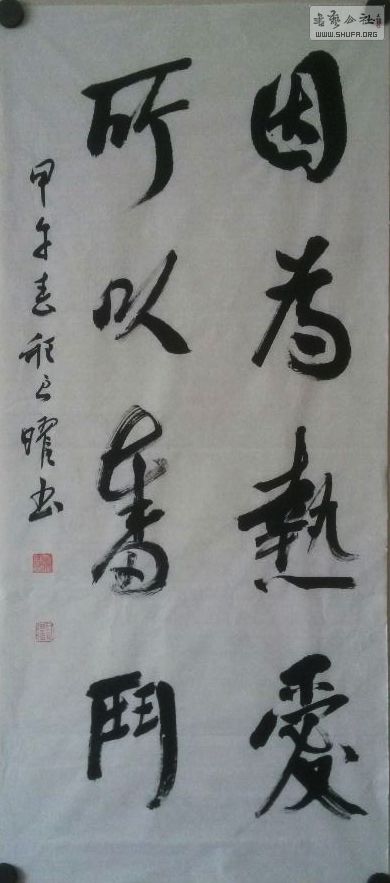 因為熱愛
所以奮鬥
甲午春
曜书
書藝公社
WWW.SHUFA.ORG